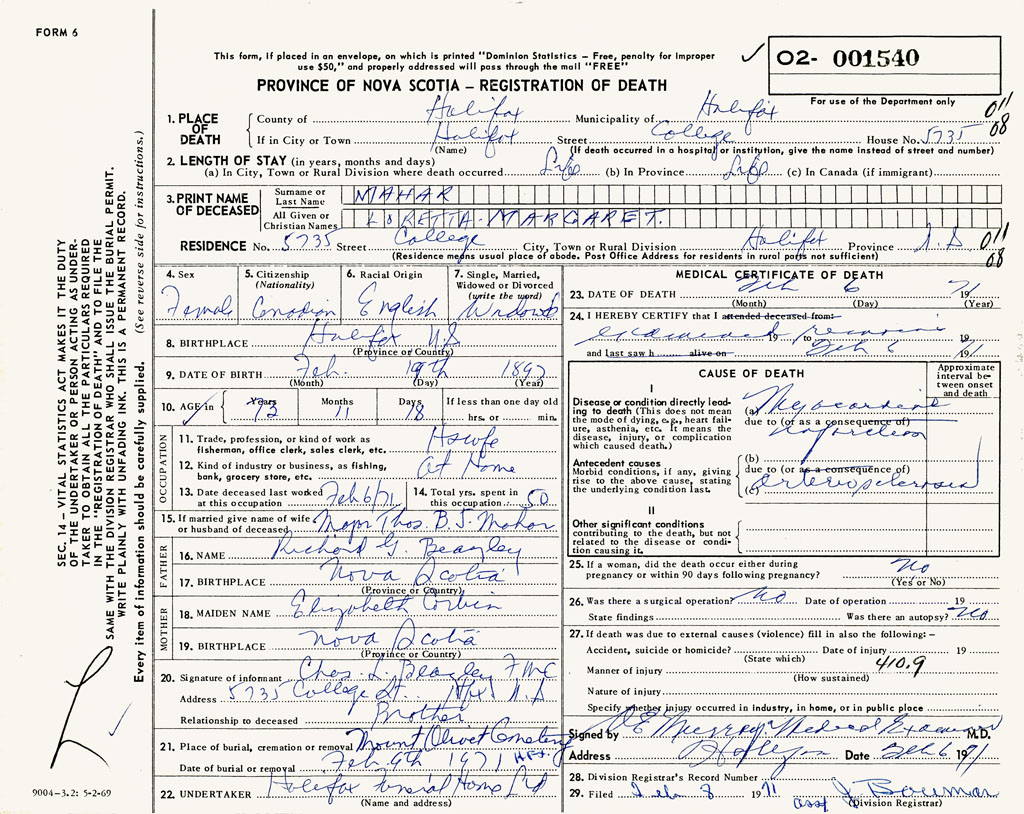 FORM 6
This form, if placed in an envelope, on which is printed "Dominion Statistics – Free, penalty for improper
use $50," and properly addressed will pass through the mail "FREE"
O2- 001540
PROVINCE OF NOVA SCOTIA – REGISTRATION OF DEATH
For use of the Department only
1. PLACE OF DEATH
County of Halifax Municipality of Halifax 011
If in City or Town Halifax Street College House No. 5735 08
(Name) (If death occurred in a hospital or institution, give the name instead of street and number)
2. LENGTH OF STAY (in years, months and days)
(a) In City, Town or Rural Division where death occurred Life (b) In Province Life (c) In Canada (if immigrant)
3. PRINT NAME OF DECEASED
Surname or Last Name MAHAR
All Given or Christian Names LORETTA-MARGARET.
RESIDENCE No. 5735 Street College City, Town or Rural Division Halifax Province N.S 011
(Residence means usual place of abode. Post Office Address for residence in rural parts not sufficient) 08
4. Sex
Female
5. Citizenship
(Nationality)
Canadian
6. Racial Origin
English
7. Single, Married,
Widowed or Divorced
(write the word)
8. BIRTHPLACE Halifax N.S
(Province or Country)
9. DATE OF BIRTH Feb. 19th 1897
(Month) (Day) (Year)
10. AGE in Years Months Days If less than one day old
73 11 18 hrs. or min.
OCCUPATION
11. Trade, profession, or kind of work as
fisherman, office clerk, sales clerk, etc. Hswfe
12. Kind of industry or business, as fishing,
bank, grocery store, etc. At Home
13. Date deceased last worked
at this occupation Feb 6/71
14. Total yrs. spent in
this occupation 50
15. If married give name of wife
or husband of deceased Major Thos. B. J. Mahar
FATHER
16. NAME Richard G. Beazley
17. BIRTHPLACE Nova Scotia
(Province or Country)
MOTHER
18. MAIDEN NAME Elizabeth Corbin
19. BIRTHPLACE Nova Scotia
(Province or Country)
20. Signature of informant Chas. L. Beazley
Address 5735 College St. Hfx N.S
Relationship to deceased Brother
21. Place of burial, cremation or removal Mount Olivet Cemetery
Date of burial or removal Feb. 9th 1971
22. UNDERTAKER Halifax Funeral Home Ltd
(Name and address)
MEDICAL CERTIFICATE OF DEATH
23. DATE OF DEATH Feb 6 1971
(Month) (Day) (Year)
24. I HEREBY CERTIFY that I attended deceased from:
examined remains 19 to Feb 6
and last saw h alive on 1971
CAUSE OF DEATH
Approximate
interval be-
tween onset
and death
I
Disease or condition directly lead-
ing to death (This does not mean
the mode of dying, e.g., heart fail-
ure, asthenia, etc. It means the
disease, injury, or complication
which caused death.)
(a) Myocardial
due to (or as a consequence of)
infarction
Antecedent causes
Morbid conditions, if any, giving
rise to the above cause, stating
the underlying condition last.
(b)
due to (or as a consequence of)
(c) Arteriosclerosis
II
Other significant conditions
contributing to the death, but not
related to the disease or condi-
tion causing it.
25. If a woman, did the death occur either during
pregnancy or within 90 days following pregnancy? No
(Yes or No)
26. Was there a surgical operation? No Date of operation 19
State findings Was there an autopsy? No
27. If death was due to external causes (violence) fill in also the following: –
Accident, suicide or homicide? Date of injury 19
(State which)
Manner of injury 410.9
(How sustained)
Nature of injury
Specify whether injury occurred in industry, in home, or in public place
Signed by Murray Medical Examiner M.D.
Address Halifax Date Feb 6 1971
28. Division Registrar's Record Number
29. Filed Feb 8 1971 asst J Bowman
(Division Registrar)
SEC. 14 – VITAL STATISTICS ACT MAKES IT THE DUTY
OF THE UNDERTAKER OR PERSON ACTING AS UNDER-
TAKER TO OBTAIN ALL THE PARTICULARS REQUIRED
IN THE "REGISTRATION OF DEATH" AND TO FILE THE
SAME WITH THE DIVISION REGISTRAR WHO SHALL ISSUE THE BURIAL PERMIT.
WRITE PLAINLY WITH UNFADING INK. THIS IS A PERMANENT RECORD.
Every item of information should be carefully supplied. (See reverse side for instructions.)
9004-3.2: 5-2-69